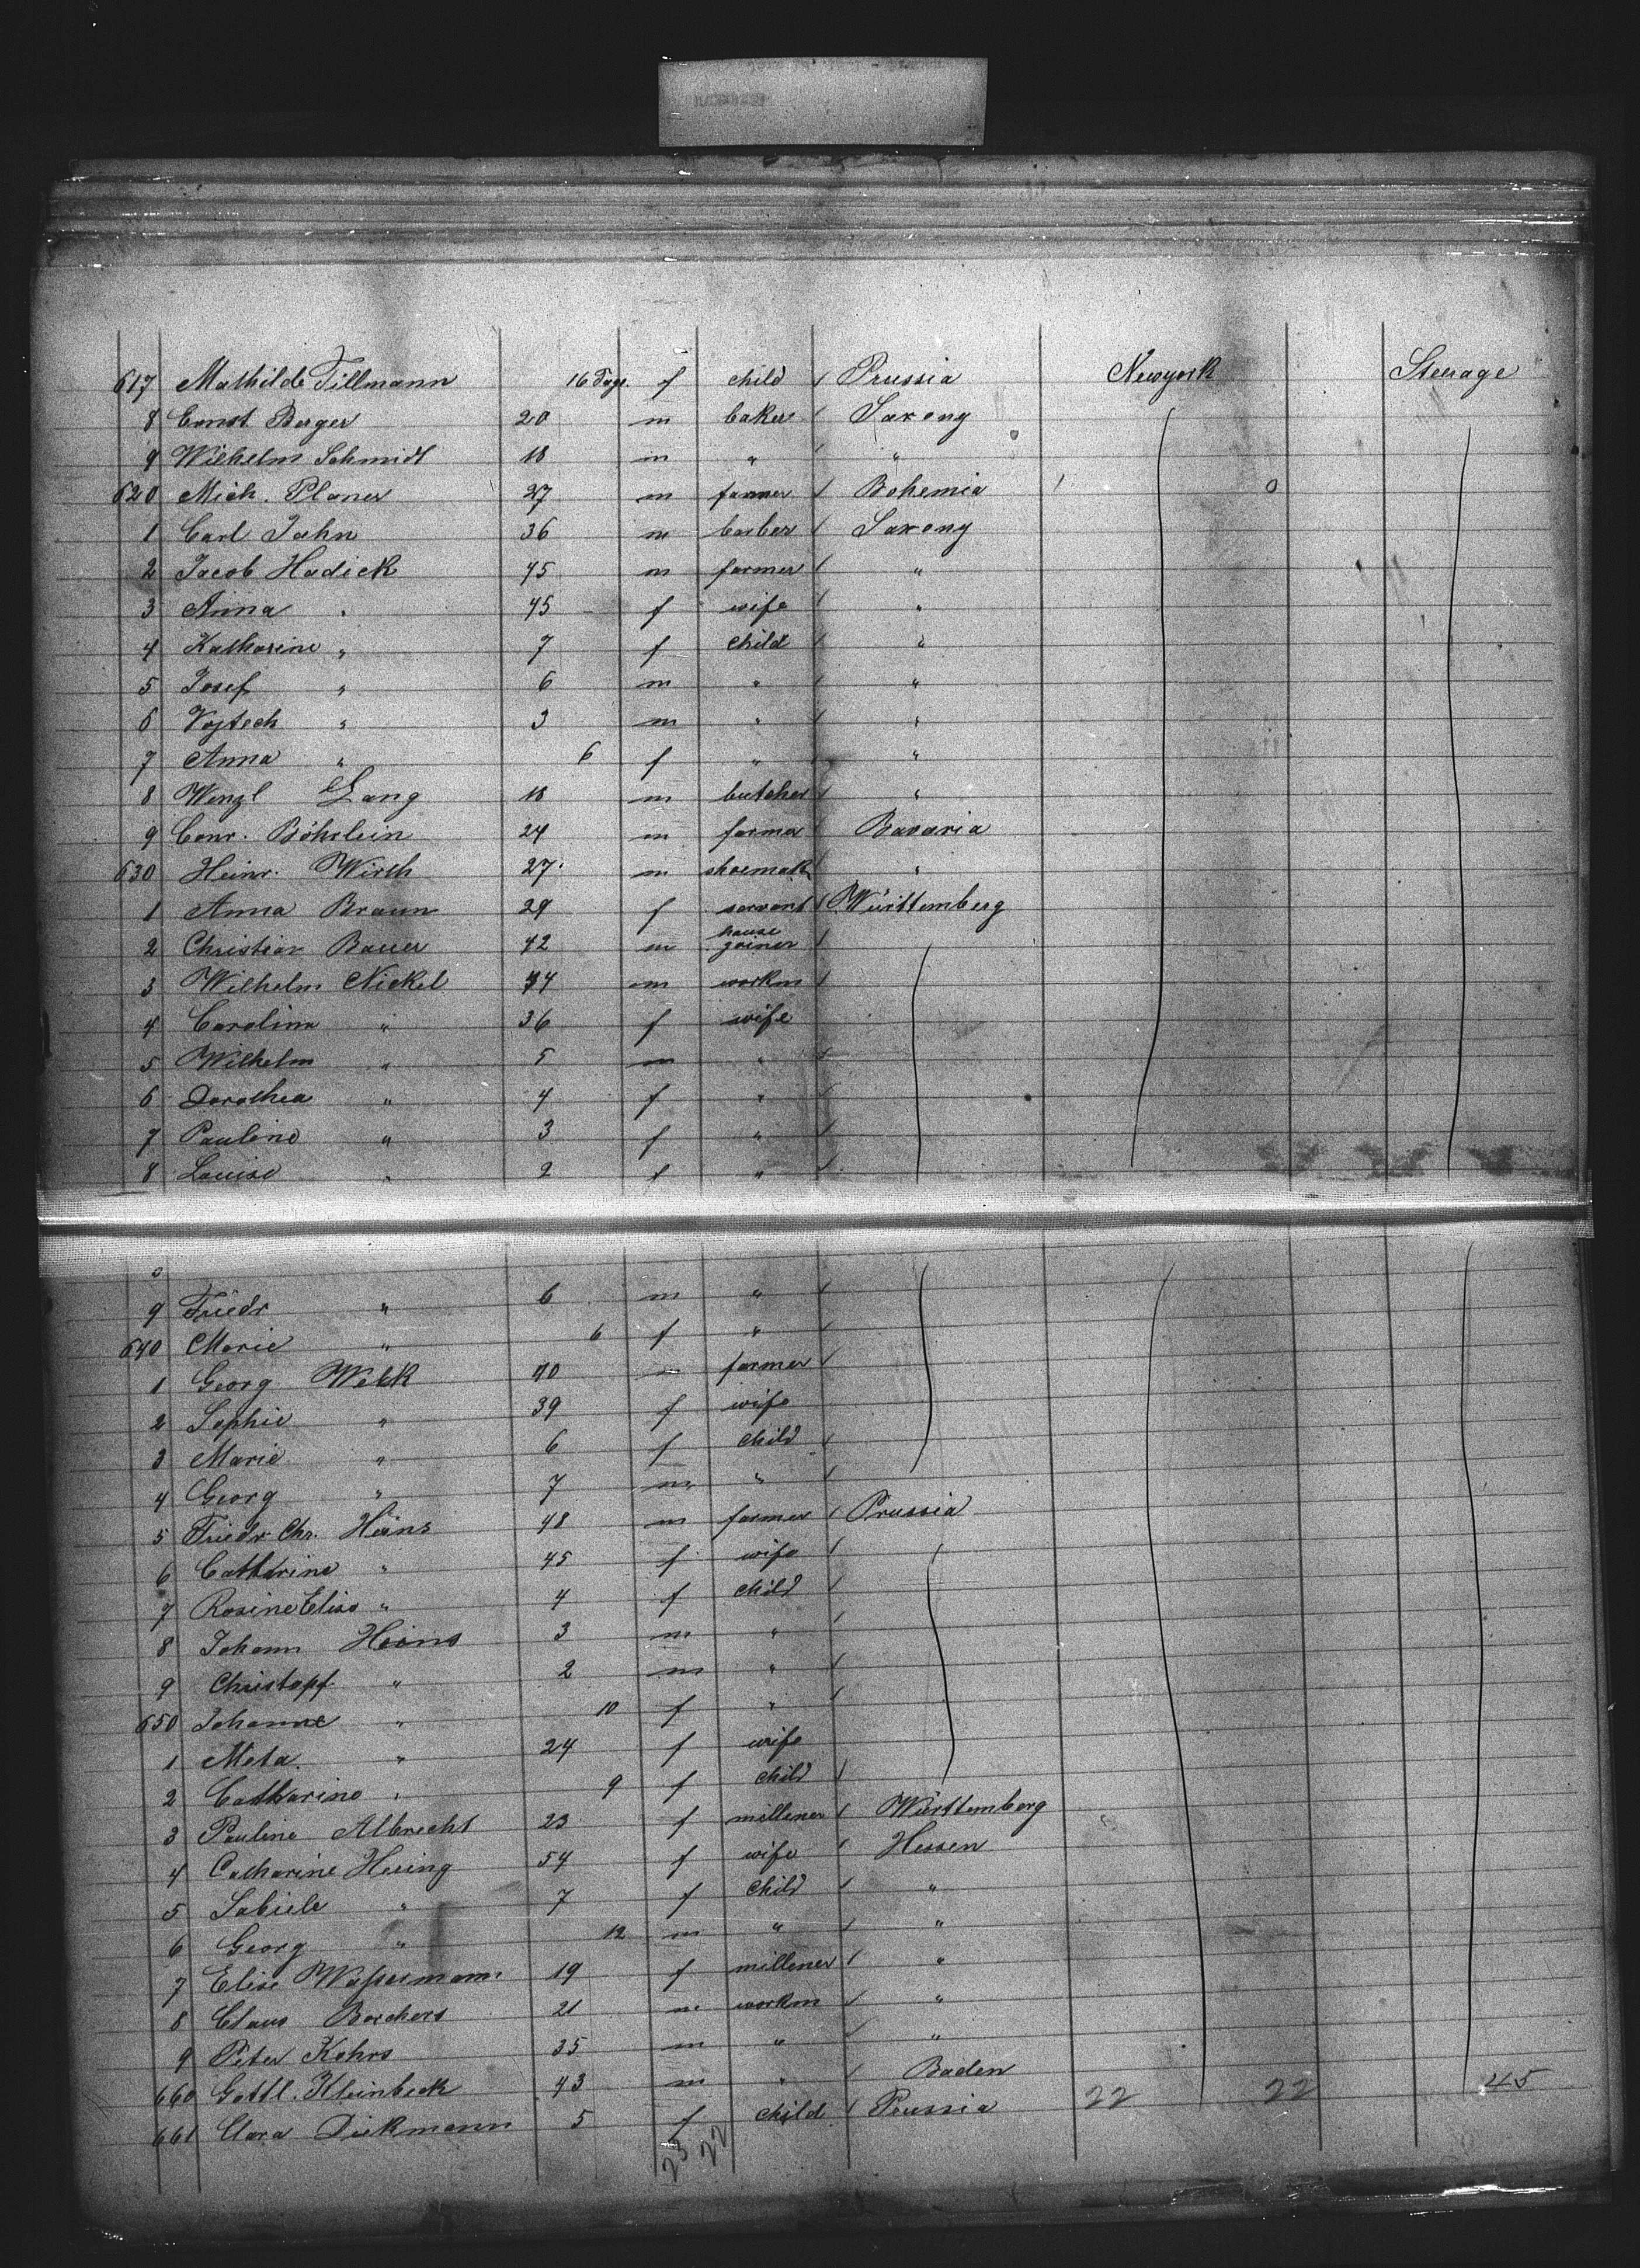 617 Mathilde Tillmann 16 Tage. f child / Prussia Newyork Steerage
8 Ernst Berger 20 m baker / Saxony
9 Wilhelm Schmidt 18 m " / "
620 Mich. Planer 27 m farmer / Bohemia
1 Carl Jahn 36 m barber / Saxony
2 Jacob Hadick 45 m farmer / "
3 Anna " 45 f wife / "
4 Katharine " 7 f child / "
5 Josef " 6 m " / "
6 Vojtech " 3 m " / "
7 Anna " 6 f " / "
8 Wenzl Lang 18 m butcher / "
9 Conr. Böhrlein 24 m farmer / Bavaria
630 Heinr. Wirth 27 m shoemak / "
1 Anna Braun 29 f servant / Württemberg
2 Christian Bauer 42 m house joiner /
3 Wilhelm Nickel 34 m workm /
4 Caroline " 36 f wife
5 Wilhelm " 5 m " /
6 Dorothea " 4 f " /
7 Pauline " 3 f " /
8 Louise " 2 f " /
9 Friedr " 6 m " /
640 Marie " 6 f " /
1 Georg Welk 40 m farmer /
2 Sophie " 39 f wife
3 Marie " 6 f child /
4 Georg " 7 m " /
5 Friedr Chr. Heins 48 m farmer / Prussia
6 Catharine " 45 f wife /
7 Rosine Elise " 4 f child /
8 Johann Heins 3 m " /
9 Christopf " 2 m " /
650 Johanne " 10 f " /
1 Meta " 24 f wife
2 Catharine " 9 f child /
3 Pauline Albrecht 23 f millener / Württemberg
4 Catharine Hering 54 f wife / Hessen
5 Sabiele " 7 f child / "
6 Georg " 12 m " / "
7 Elise Wassermann 19 f millener / "
8 Claus Borchers 21 m workm / "
9 Peter Kohrs 35 m " / "
660 Gottl. Kleinbeck 43 m " / Baden
661 Clara Diekmann 5 f child / Prussia 22 22 45
23 22